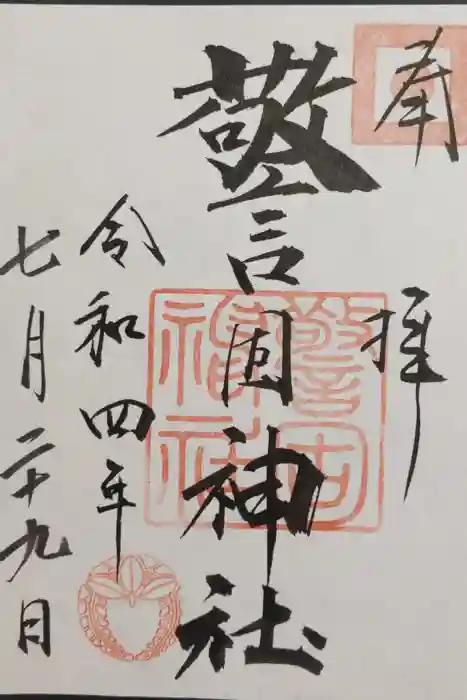 奉拝
警固神社
令和四年
七月二十九日
警固
神社